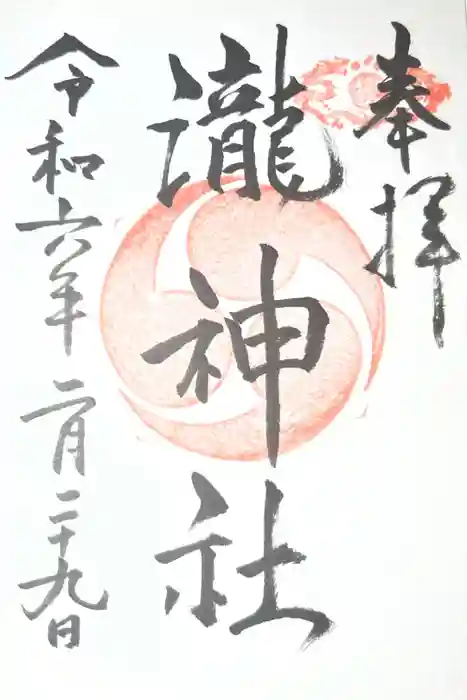 奉拝
瀧神社
令和六年二月二十九日